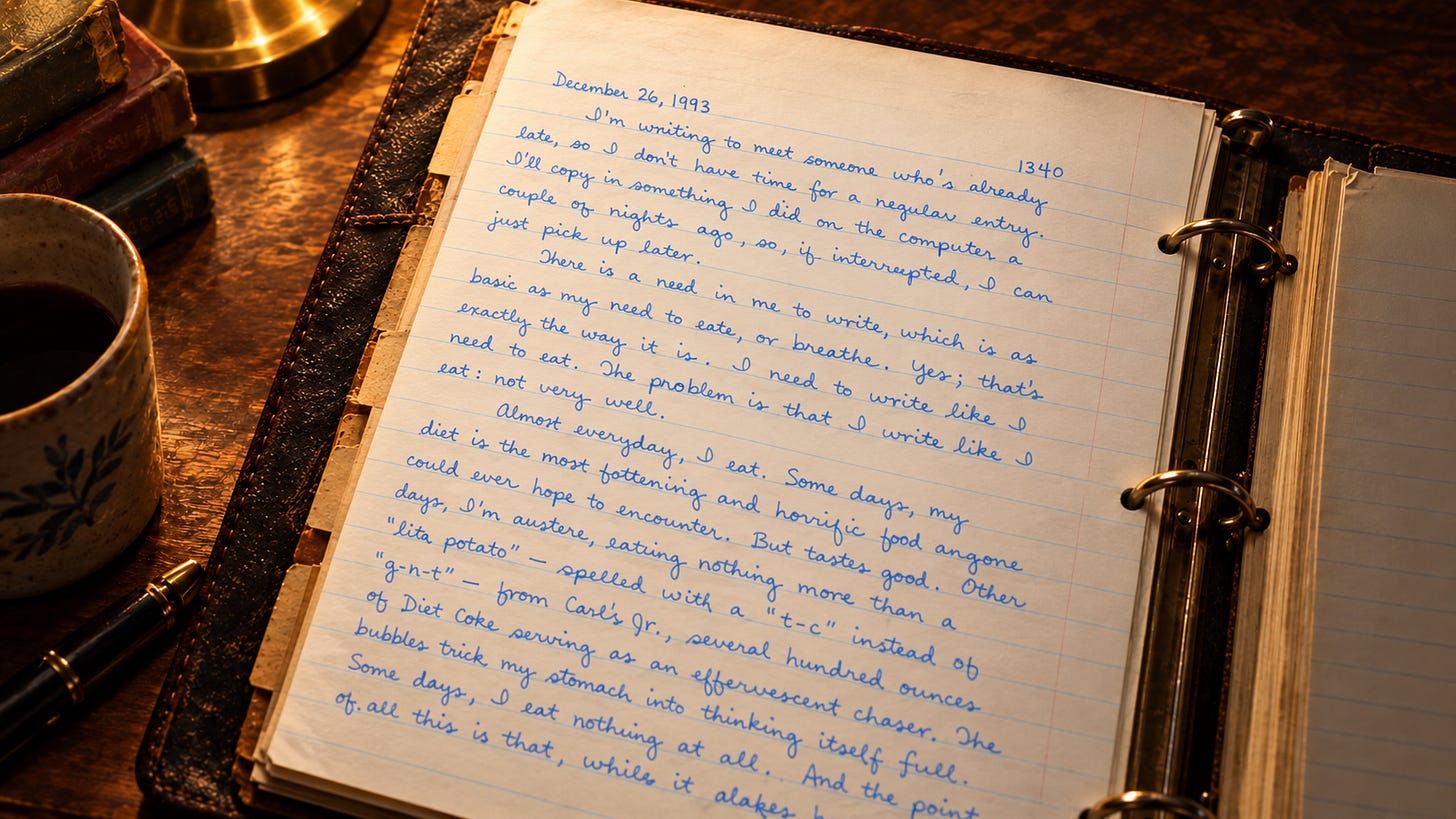 December 26, 1993
1340
I'm writing to meet someone who's already
late, so I don't have time for a regular entry.
I'll copy in something I did on the computer a
couple of nights ago, so, if interrupted, I can
just pick up later.
There is a need in me to write, which is as
basic as my need to eate, or breathe. Yes; that's
exactly the way it is. I need to write like I
need to eat. The problem is that I write like I
eat: not very well.
Almost everyday, I eat. Some days, my
diet is the most fottening and horrific food angone
could ever hope to encounter. But tastes good. Other
days, I'm austere, eating nothing more than a
"lita potato" — spelled with a "t-c" instead of
"g-n-t" — from Carl's Jr., several hundred ounces
of Diet Coke serving as an effervescent chaser. The
bubbles trick my stomach into thinking itself full.
Some days, I eat nothing at all. And the point
of. all this is that, while it